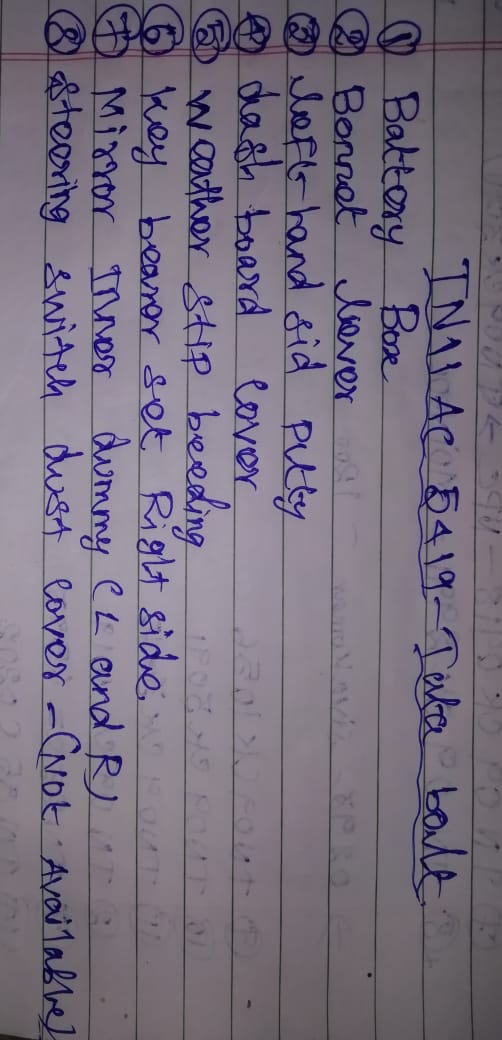 TN11 AC 5419 - Tata bolt
① Battory Box
② Bonnet lover
③ left-hand sid Ptty
④ dash board Cover
⑤ Weather Stip beeding
⑥ key bearer set Right side.
⑦ Mirror Inner dummy (L and R)
⑧ Steering switch dust Cover - (Not Available)